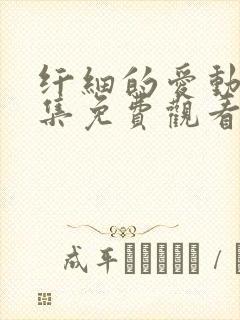 纤細的愛動
集免費觀看
成年 /